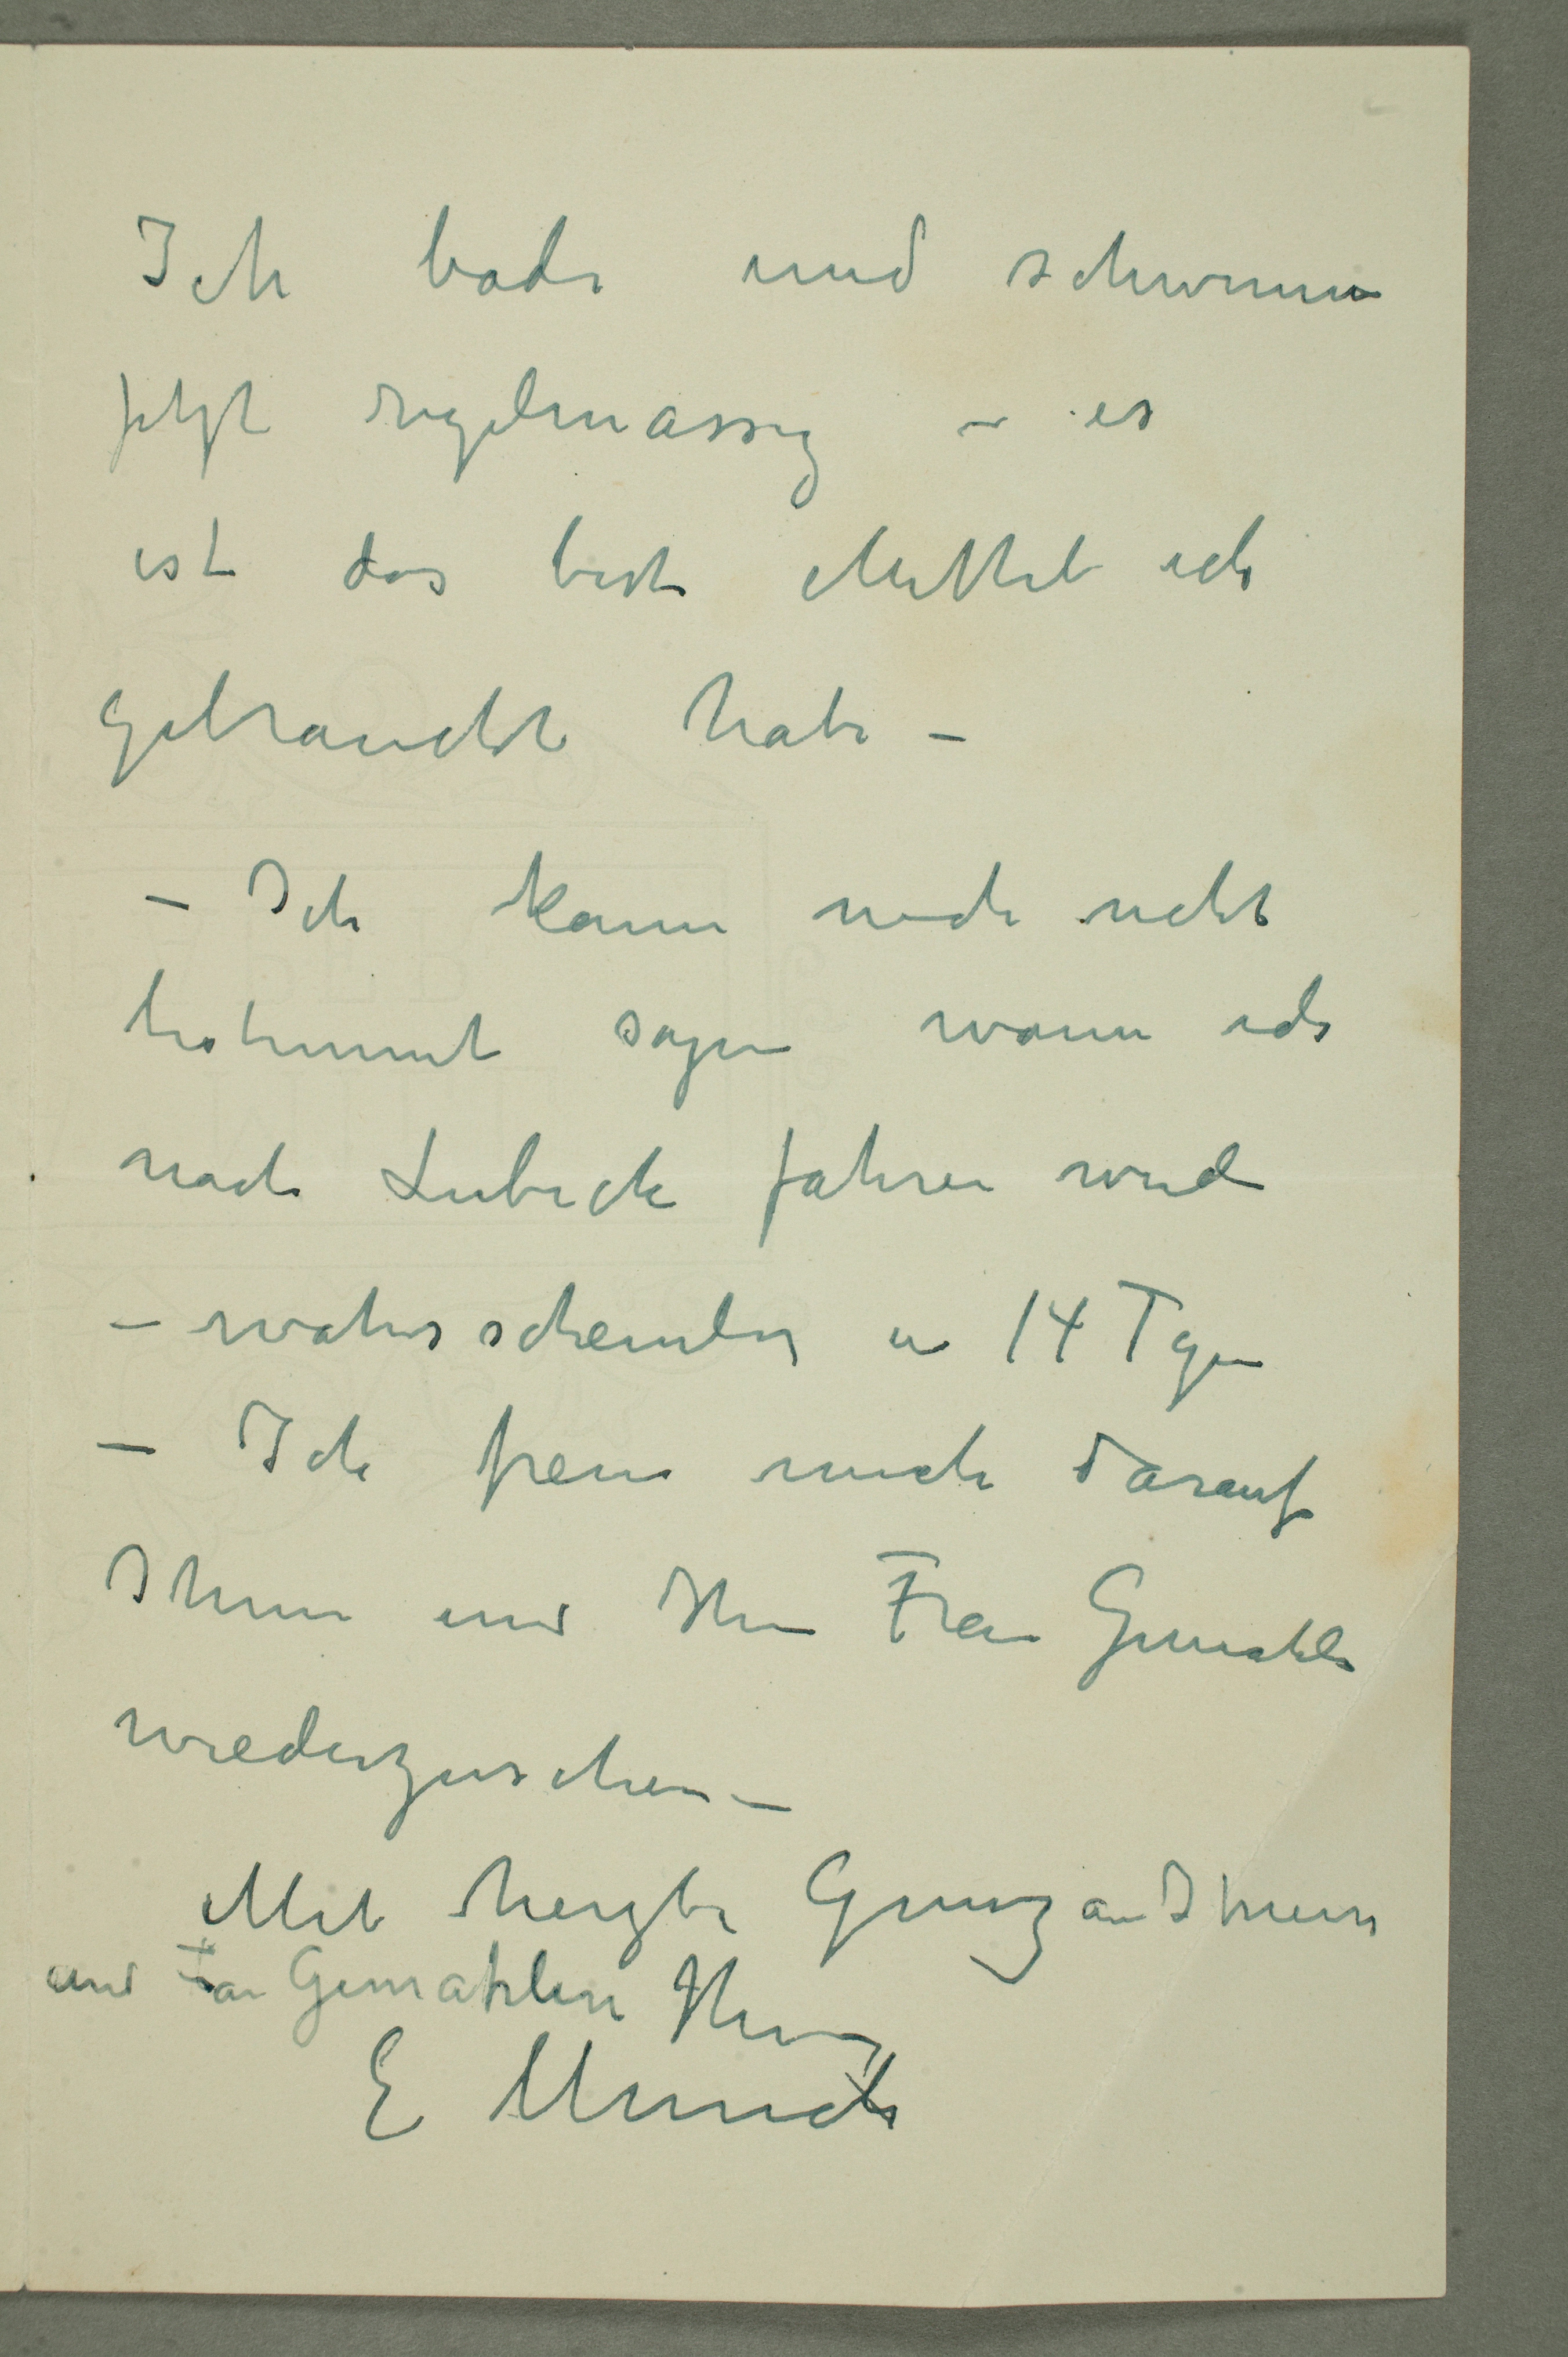 Ich bade und schwimme
jetzt regelmässig – es
ist das beste Mittel ich
gebraucht habe –
– Ich kann noch nicht
bestimmt sagen wann ich
nach Lubeck fahren werde
– wahrsscheinlig in 14 Tgen
– Ich freue mich darauf
Ihnen und Ihre Frau Gemahlin
wiederzusehen –
Mit herzl. Grusz an Ihnen
und Frau Gemahlin Ihr
E Munch